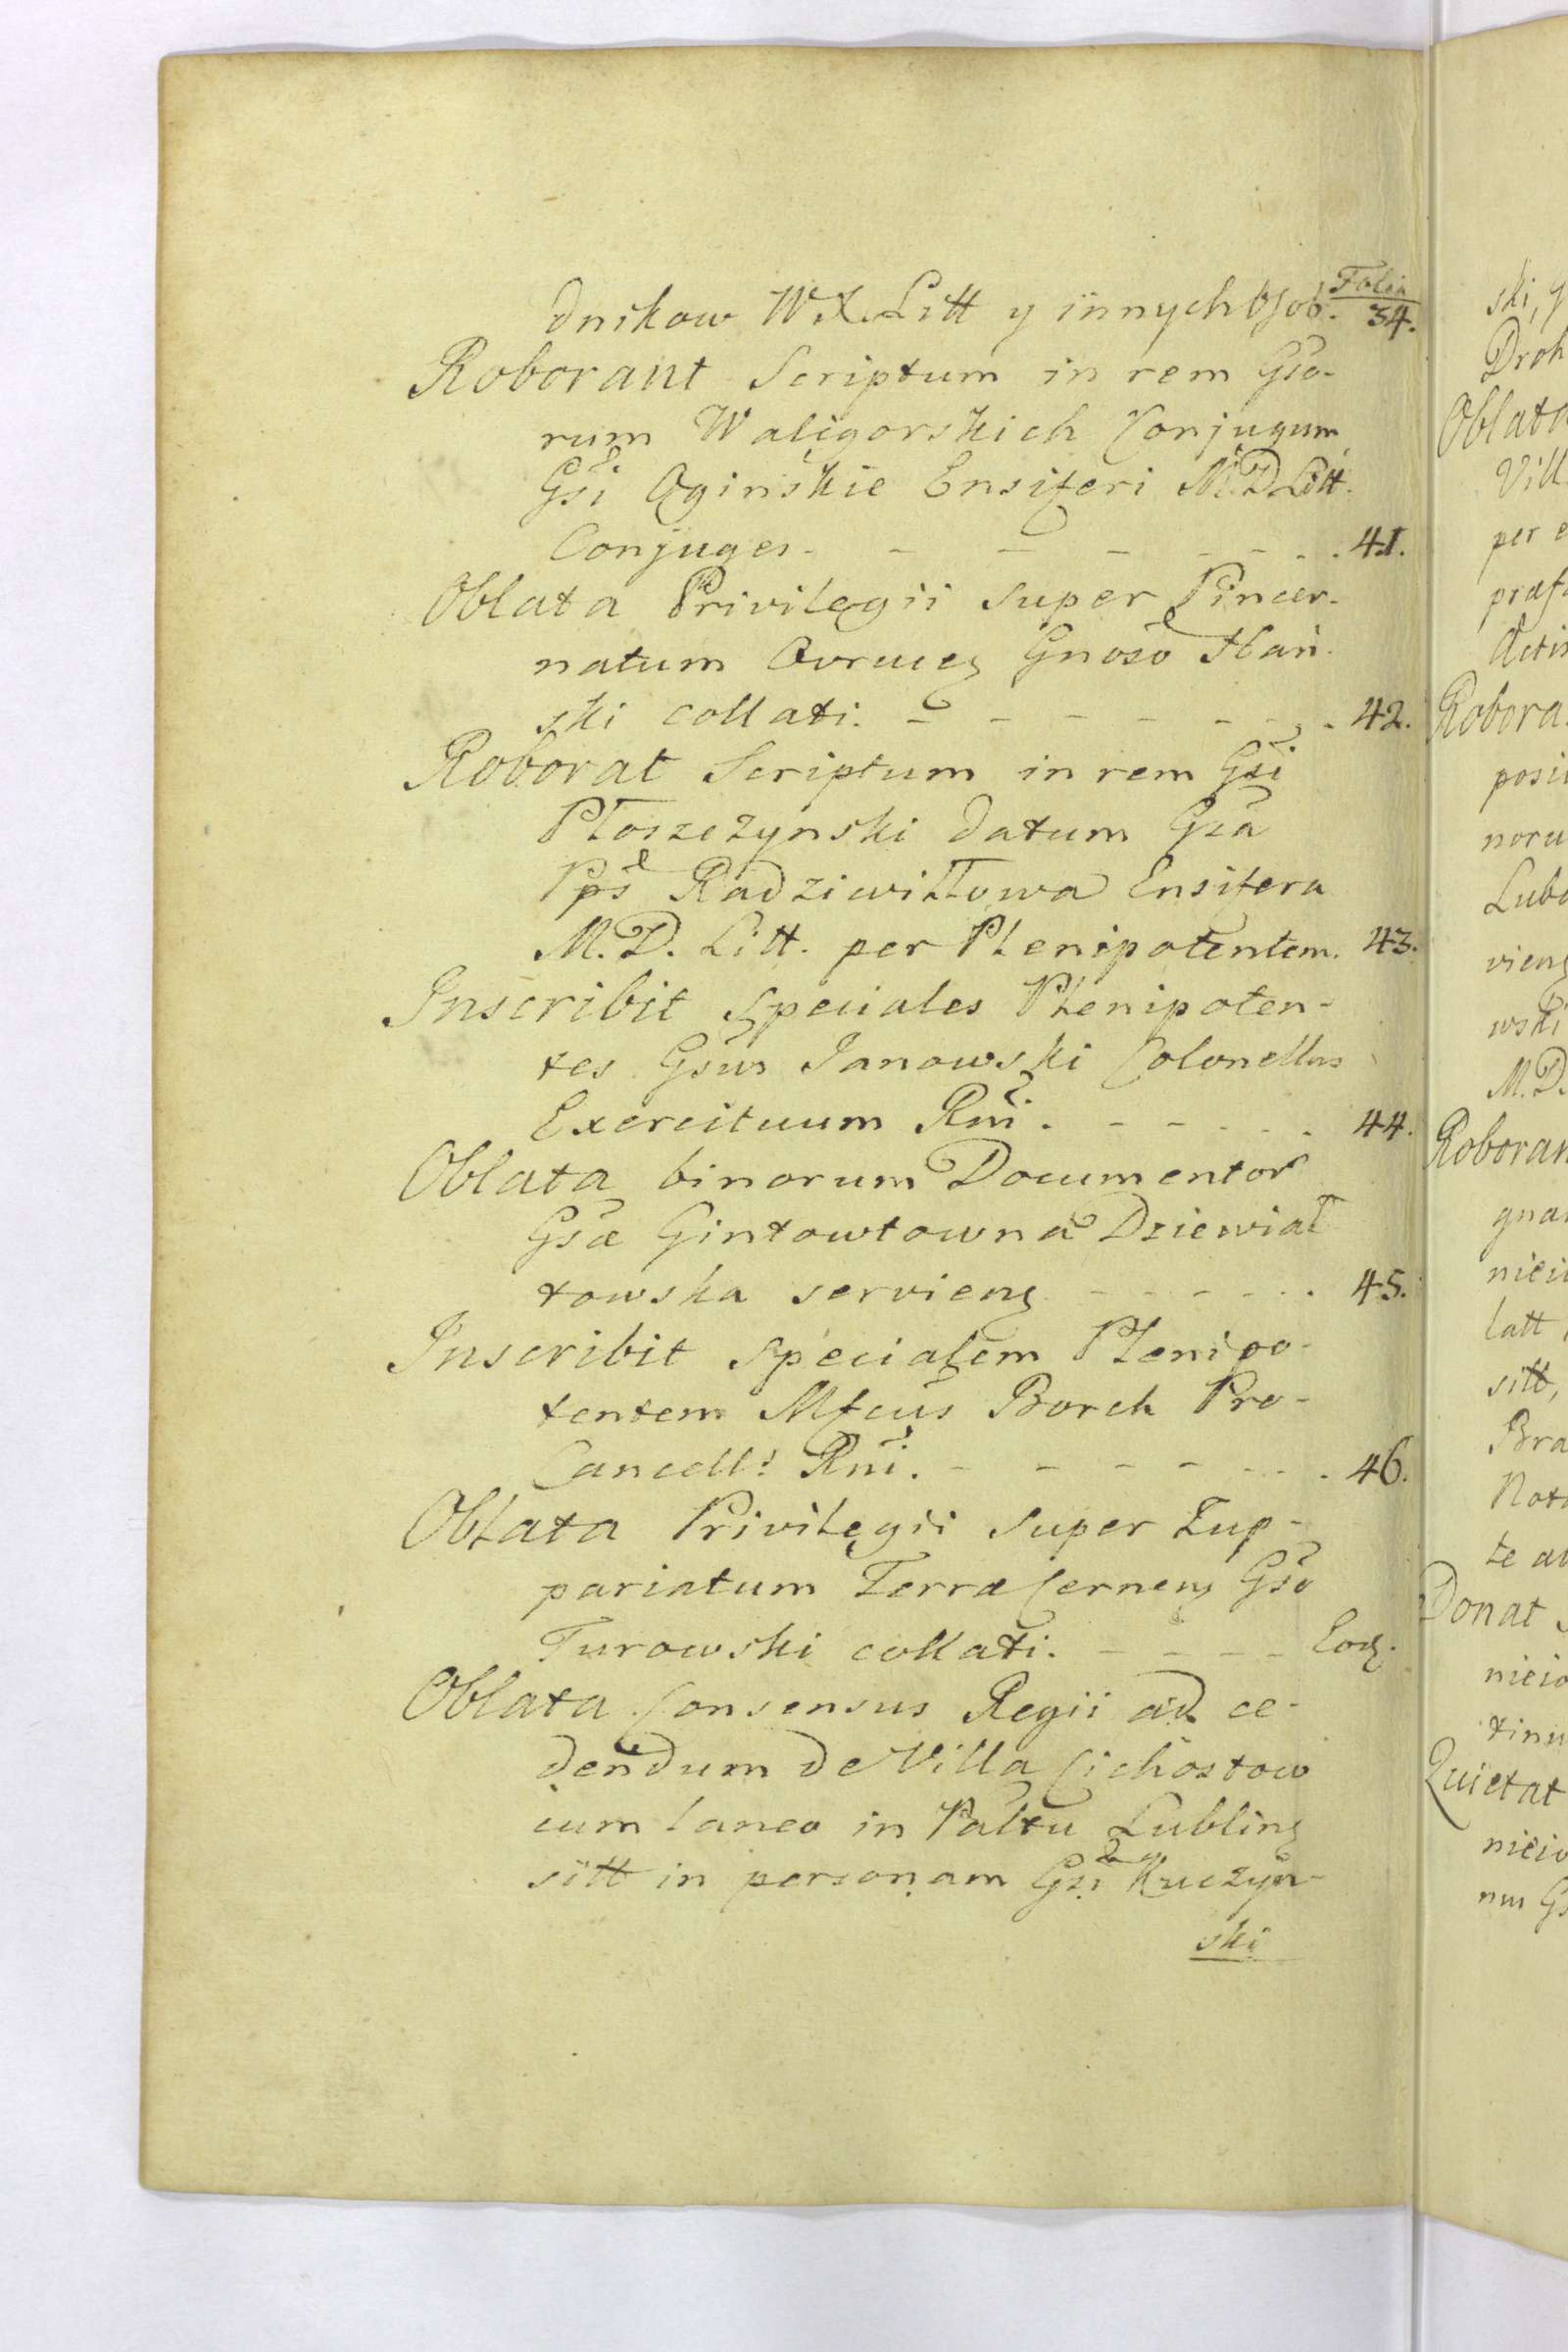 Folia
dnikow W.X. Litt y innych Osob. 34.
Roborant Scriptum in rem Gso-
rum Waligorskich Conjugum
Gsi Oginskie Ensiferi M.D. Litt.
Conjuges. - - - - - - . 41.
Oblata Privilegii super Pincer-
natum Ovruceg Gnoso Han-
ski collati. - - - - - - . 42.
Roborat Scriptum in rem Gsi
Płoszczynski datum Gsa
Pps Radziwiłłowa Ensifera
M.D. Litt. per Plenipotentem. 43.
Inscribit speciales Plenipoten-
tes Gsus Janowski Colonellus
Exercituum Rni. - - - - - . 44.
Oblata binorum Documentor
Gsæ Gintowtowna Dziewiał
towska servieng - - - - - . 45.
Inscribit specialem Plenipo-
tentem Mfcus Borch Pro-
Cancell: Rni. - - - - - - . 46.
Oblata Privilegii super Zup-
pariatum Terræ Cerneng Gso
Turowski collati. - - - - Eod.
Oblata Consensus Regii ad ce-
dendum de Villa Cichostow
cum laneo in Paltu Lubling
sitt in personam Gsi Kuczyn-
ski
ski,
Droh
Oblata
Vill
per e
præf
Actin
Robora
posi
noru
Lubo
vieng
wski
M.D.
Roboran
gna
nici
latt
sitt,
Bra
Not
te
Donat
nicio
tinu
Quietat
nicio
num Gs